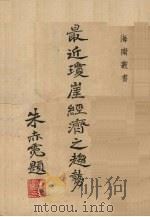 海南叢書
最近瓊崖經濟之趨勢
朱赤霓題